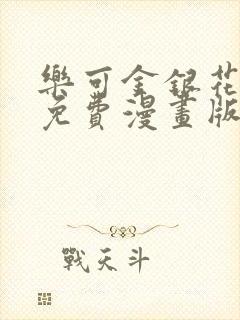 樂可金銀花
免費漫畫版
戰天斗